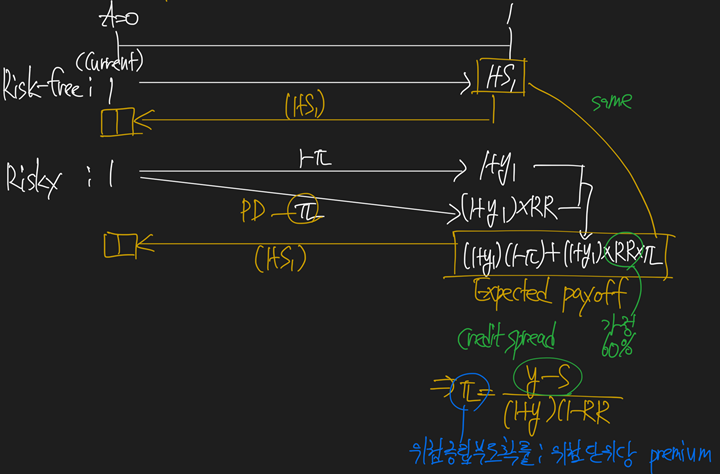 t=0 1
(Current)
Risk-free : 1 1+S₁
(1+S₁)
same
Risky : 1 1-π 1+y₁
PD π (1+y₁)×RR
(1+S₁) (1+y₁)(1-π)+(1+y₁)×RR×π
Expected payoff
credit spread 가정 60%
⇒ π = y-S / (1+y)(1-RR
위험중립부도확률 ; 위험단위당 premium